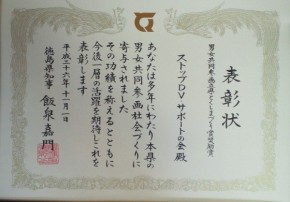 表彰状
男女共同参画立県とくしまづくり賞奨励賞
ストップDVサポートの会殿
あなたは多年にわたり本県の
男女共同参画社会づくりに
寄与されました
その功績を称えるとともに
今後一層の活躍を期待しこれを
表彰します
平成二十六年十一月一日
徳島県知事 飯泉嘉門